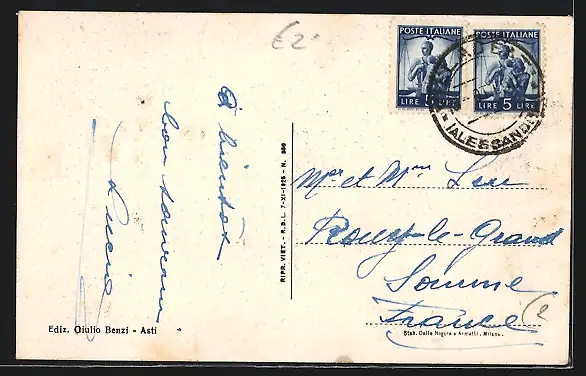 E2
POSTE ITALIANE
LIRE 5 LIRE
POSTE ITALIANE
LIRE 5 LIRE
(ALESSANDRIA
à bientôt
bon souvenir
RIPR. VIET. - R.D.L. 7-XI-1925 - N.
Mr et Mme
Rouy-le-Grand
Somme
France
Ediz. Giulio Benzi - Asti
Stab. Dalle Nogare e Armetti, Milano.